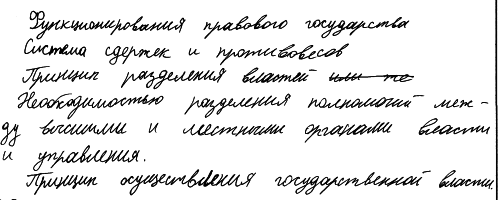 Функционирования правового государства
Система сдержек и противовесов
Принцип разделения властей или же
Необходимостью разделения полномочий меж-
ду высшими и местными органами власти
и управления.
Принцип осуществления государственной власти.